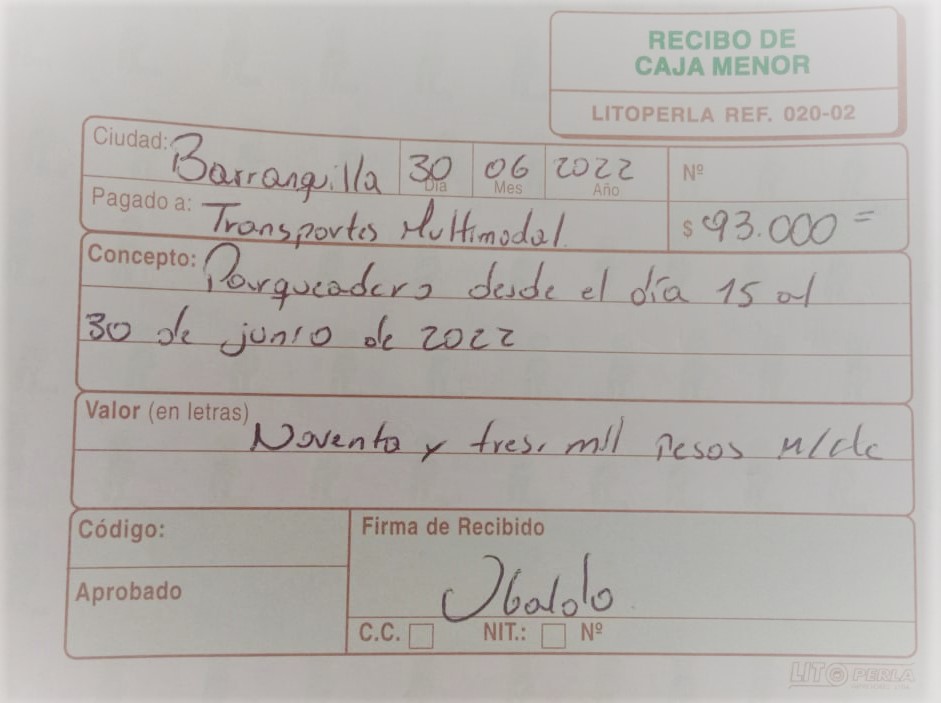 RECIBO DE
CAJA MENOR
LITOPERLA REF. 020-02
Ciudad: Barranquilla 30 06 2022 Nº
Día Mes Año
Pagado a: Transportes Multimodal. $ 93.000 =
Concepto: Parqueadero desde el día 15 al
30 de junio de 2022
Valor (en letras) Noventa y tres mil pesos m/cte
Código:
Firma de Recibido
Aprobado
Ubaldo
C.C. NIT.: Nº
LITO PERLA